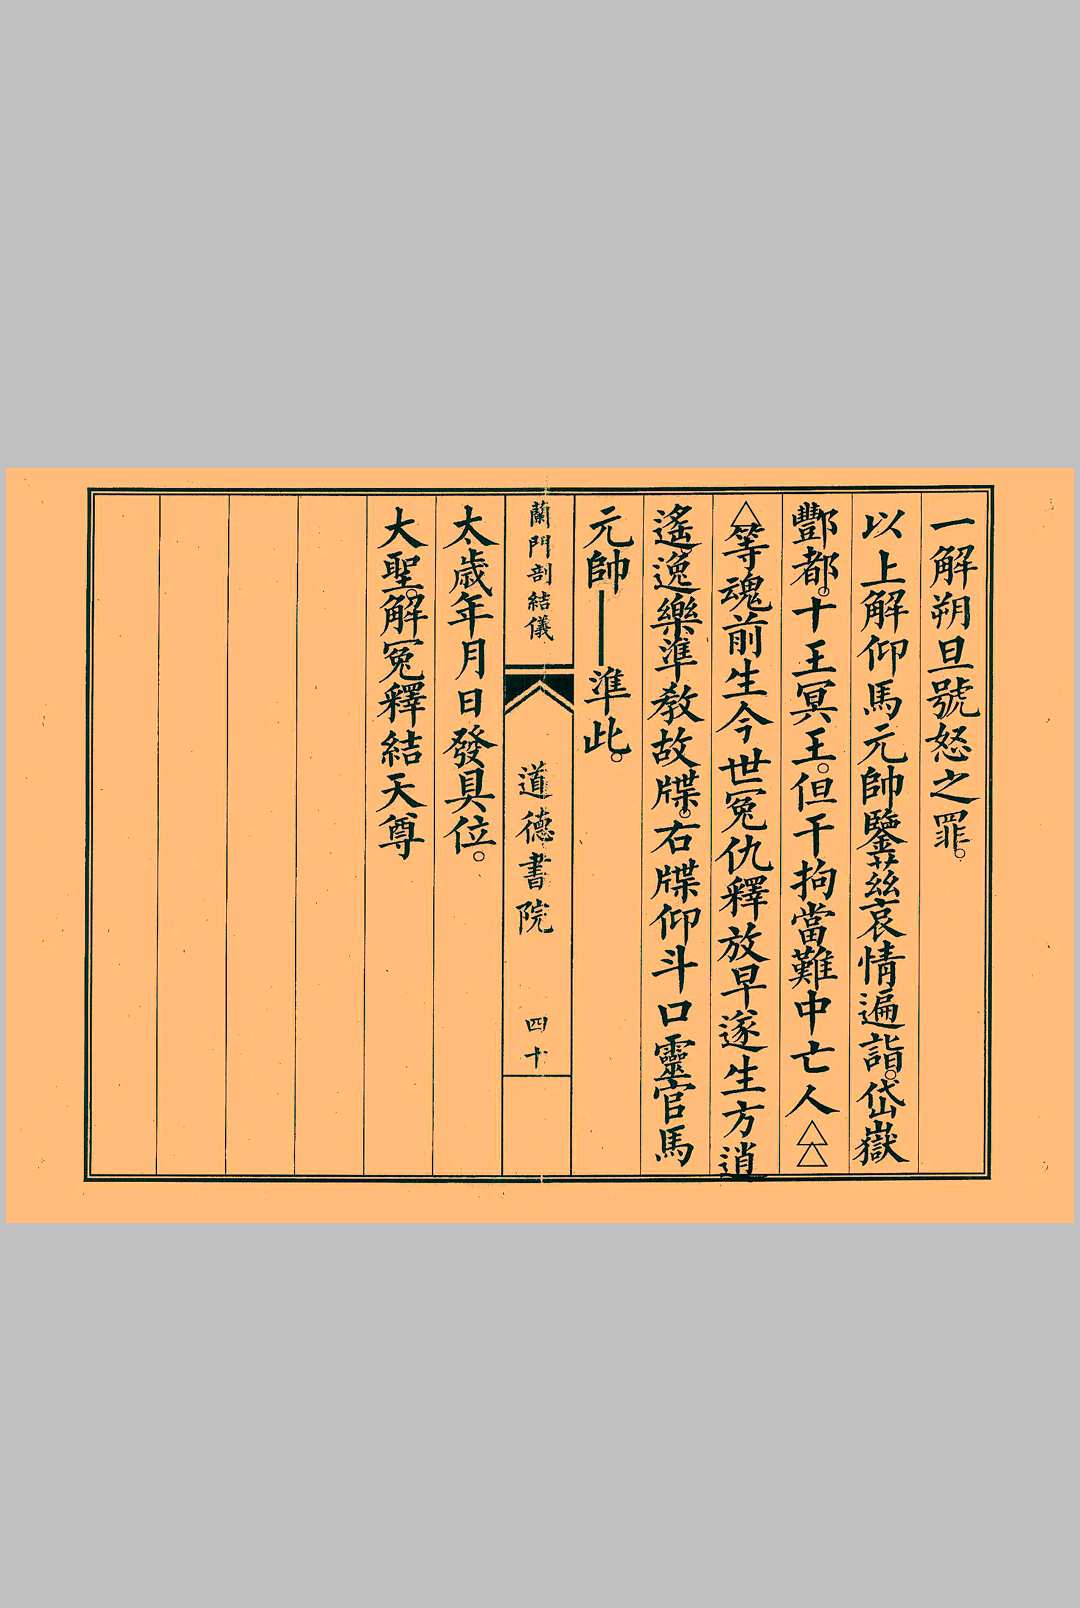 一解朔旦號怒之罪。
以上解仰馬元帥鑒茲哀情遍詣。岱嶽
酆都。十王冥王。但干拘當難中亡人△△
△等魂前生今世冤仇釋放早遂生方逍
遙逸樂準教故牒。右牒仰斗口靈官馬
元帥——準此。
蘭門剖結儀
道德書院
四十
太歲年月日發具位。
大聖。解冤釋結天尊